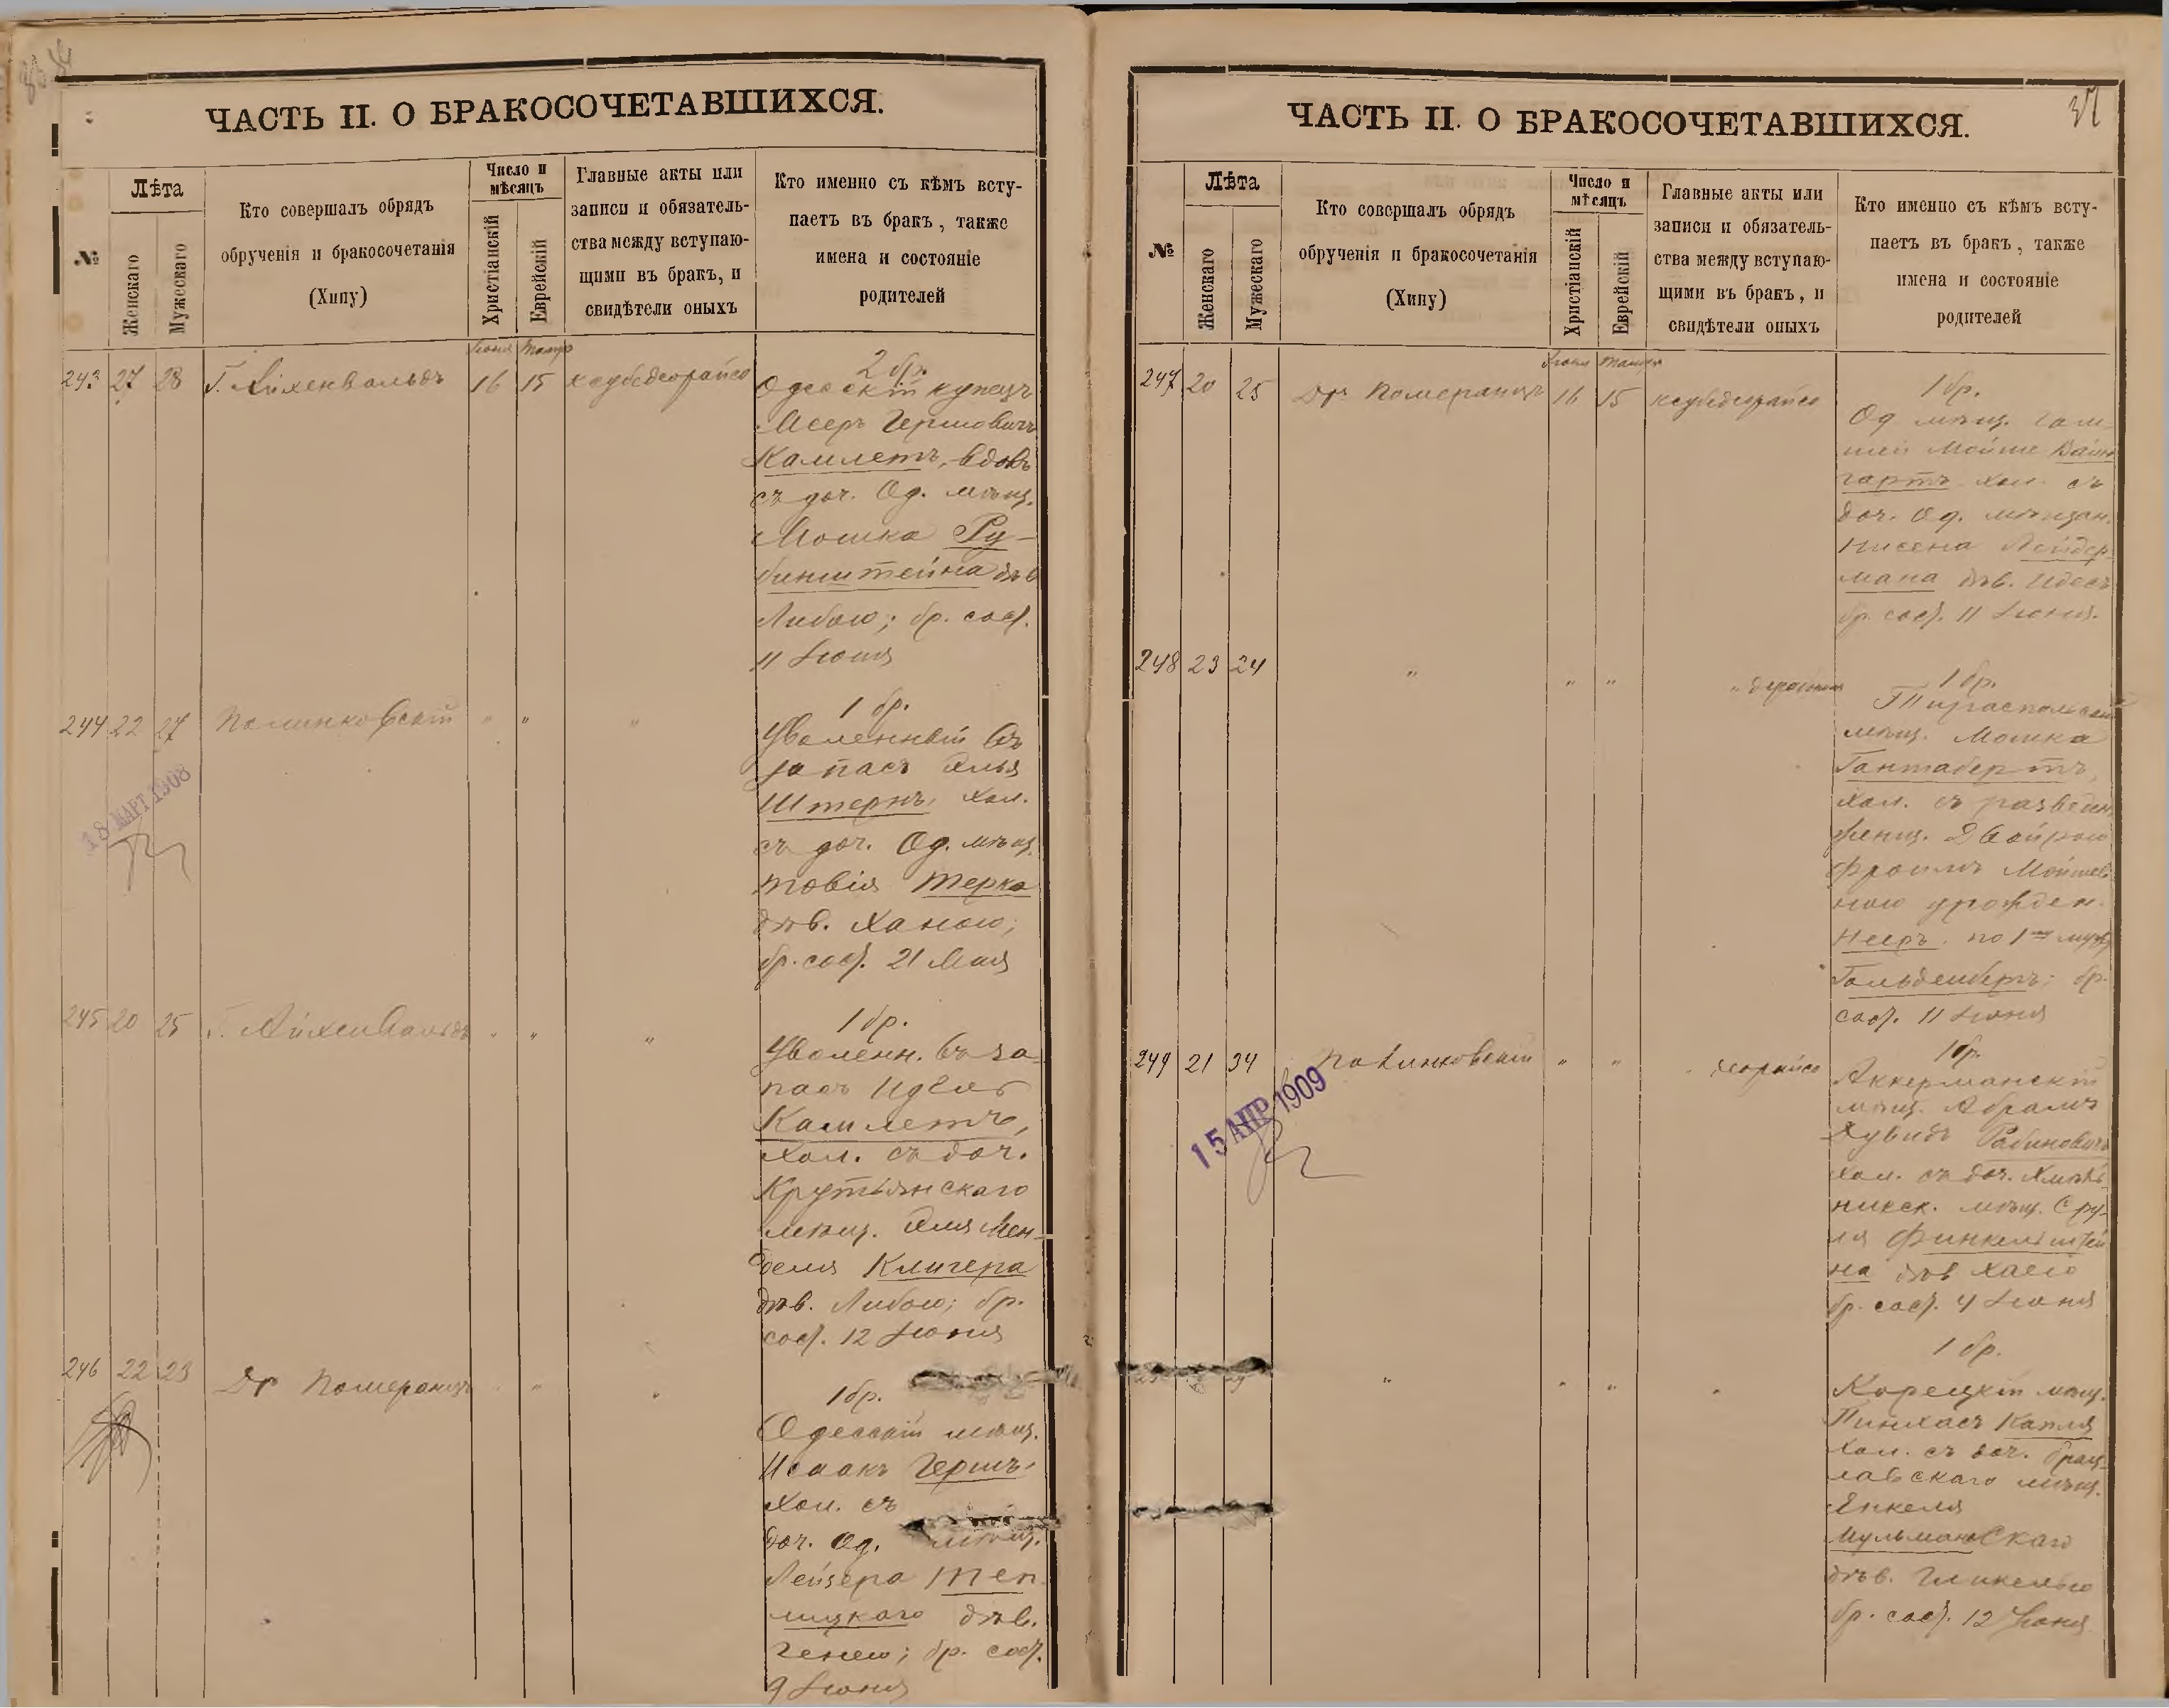 ЧАСТЬ II. О БРАКОСОЧЕТАВШИХСЯ.
№
Лѣта
Женскаго
Мужескаго
Кто совершалъ обрядъ
обрученія и бракосочетанія
(Хипу)
Число и
мѣсяцъ
Христіанскій
Еврейскій
Главные акты или
записи и обязатель-
ства между вступаю-
щими въ бракъ, и
свидѣтели оныхъ
Кто именно съ кѣмъ всту-
паетъ въ бракъ, также
имена и состояніе
родителей
Іюня
243 27 28 Г. Айхенвальдъ 16 15
2 бр.
Одесскій купецъ
Мееръ Гершовичъ
Камлетъ, вдовъ
съ доч. Од. мѣщ.
Мошка Ру-
бинштейна дѣв
Либою; бр. сос.
11 Іюня
244 22 27 Полинковскій " " "
18 МАРТ 1908
1 бр.
Уволенный въ
запасъ Элья
Штернъ, хол.
съ доч. Од. мѣщ.
Товія Терка
дѣв. Ханою;
бр. сос. 21 Мая
245 20 25 Г. Айхенвальдъ " " "
1 бр.
Уволенн. въ за-
пасъ Идель
Камлетъ,
хол. съ доч.
Крутьянскаго
мѣщ. Эля Мен-
деля Клигера
дѣв. Либою; бр.
сос. 12 Іюня
246 22 23 Др Померанцъ " " "
1 бр.
Одесскій мѣщ.
Исаакъ Гершъ
хол. съ
доч. Од. мѣщ.
Лейзера Теп
лицкаго дѣв.
Генею; бр. сос.
9 Іюня
ЧАСТЬ II. О БРАКОСОЧЕТАВШИХСЯ.
37
№
Лѣта
Женскаго
Мужескаго
Кто совершалъ обрядъ
обрученія и бракосочетанія
(Хипу)
Число и
мѣсяцъ
Христіанскій
Еврейскій
Главные акты или
записи и обязатель-
ства между вступаю-
щими въ бракъ, и
свидѣтели оныхъ
Кто именно съ кѣмъ всту-
паетъ въ бракъ, также
имена и состояніе
родителей
Іюня
247 20 25 Др Померанцъ 16 15
1 бр.
Од мѣщ.
Мойше Вайн
гартъ хол. съ
доч. Од. мѣщан.
Нисена Лейдер
мана дѣв. Идесъ
бр. сос. 11 Іюня.
248 23 24 " " " "
1 бр.
Тираспольскій
мѣщ. Мошка
Гантабертъ,
хол. съ разведен.
женщ. Двойрою
Фроимъ Мойшев
ною урожден.
Нееръ по 1му мужу
Гольденбергъ; бр.
сос. 11 Іюня
249 21 34 Полинковскій " " "
15 АПР 1909
1 бр.
Аккерманскій
мѣщ. Абрамъ
Дувидъ Рабиновичъ
хол. съ доч. Хмѣль
никск. мѣщ. Сру-
ля Финкельштей
на дѣв Хаею
бр. сос. 4 Іюня
" " " "
1 бр.
Корецкій мѣщ.
Пинхасъ Капля
хол. съ доч. брац-
лавскаго мѣщ.
Янкеля
Мульмановскаго
дѣв. Гликелью
бр. сос. 12 Іюня